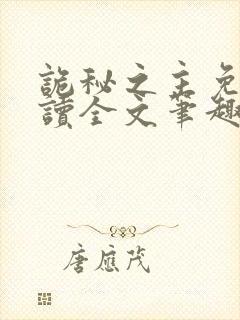 詭秘之主免
讀全文筆趣
唐應茂